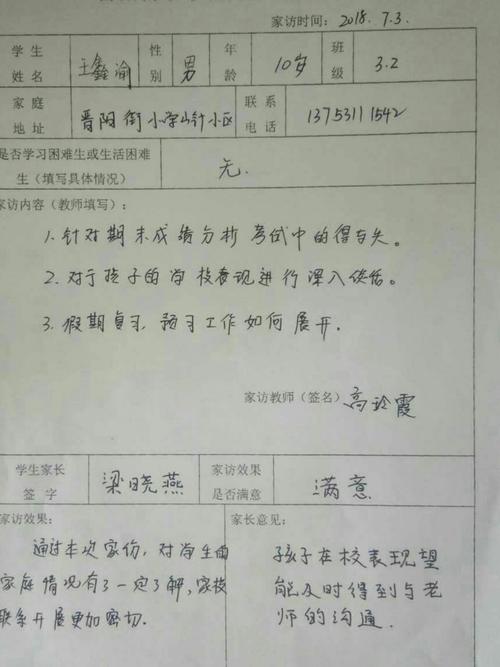 家访时间：2018.7.3.
学生姓名 王鑫渝 性别 男 年龄 10岁 班级 3.2
家庭地址 晋阳街小学 小区 联系电话 13753111542
是否学习困难生或生活困难生（填写具体情况） 无.
家访内容（教师填写）：
1. 针对期末成绩分析考试中的得与失。
2. 对于孩子的学校表现进行深入谈话。
3. 假期复习、预习工作如何展开.
家访教师（签名） 高玲霞
学生家长签字 梁晓燕 家访效果是否满意 满意
家访效果：
通过本次家访，对学生的
家庭情况有了一定了解，家校
联系开展更加密切.
家长意见：
孩子在校表现望
能及时得到与老
师的沟通.